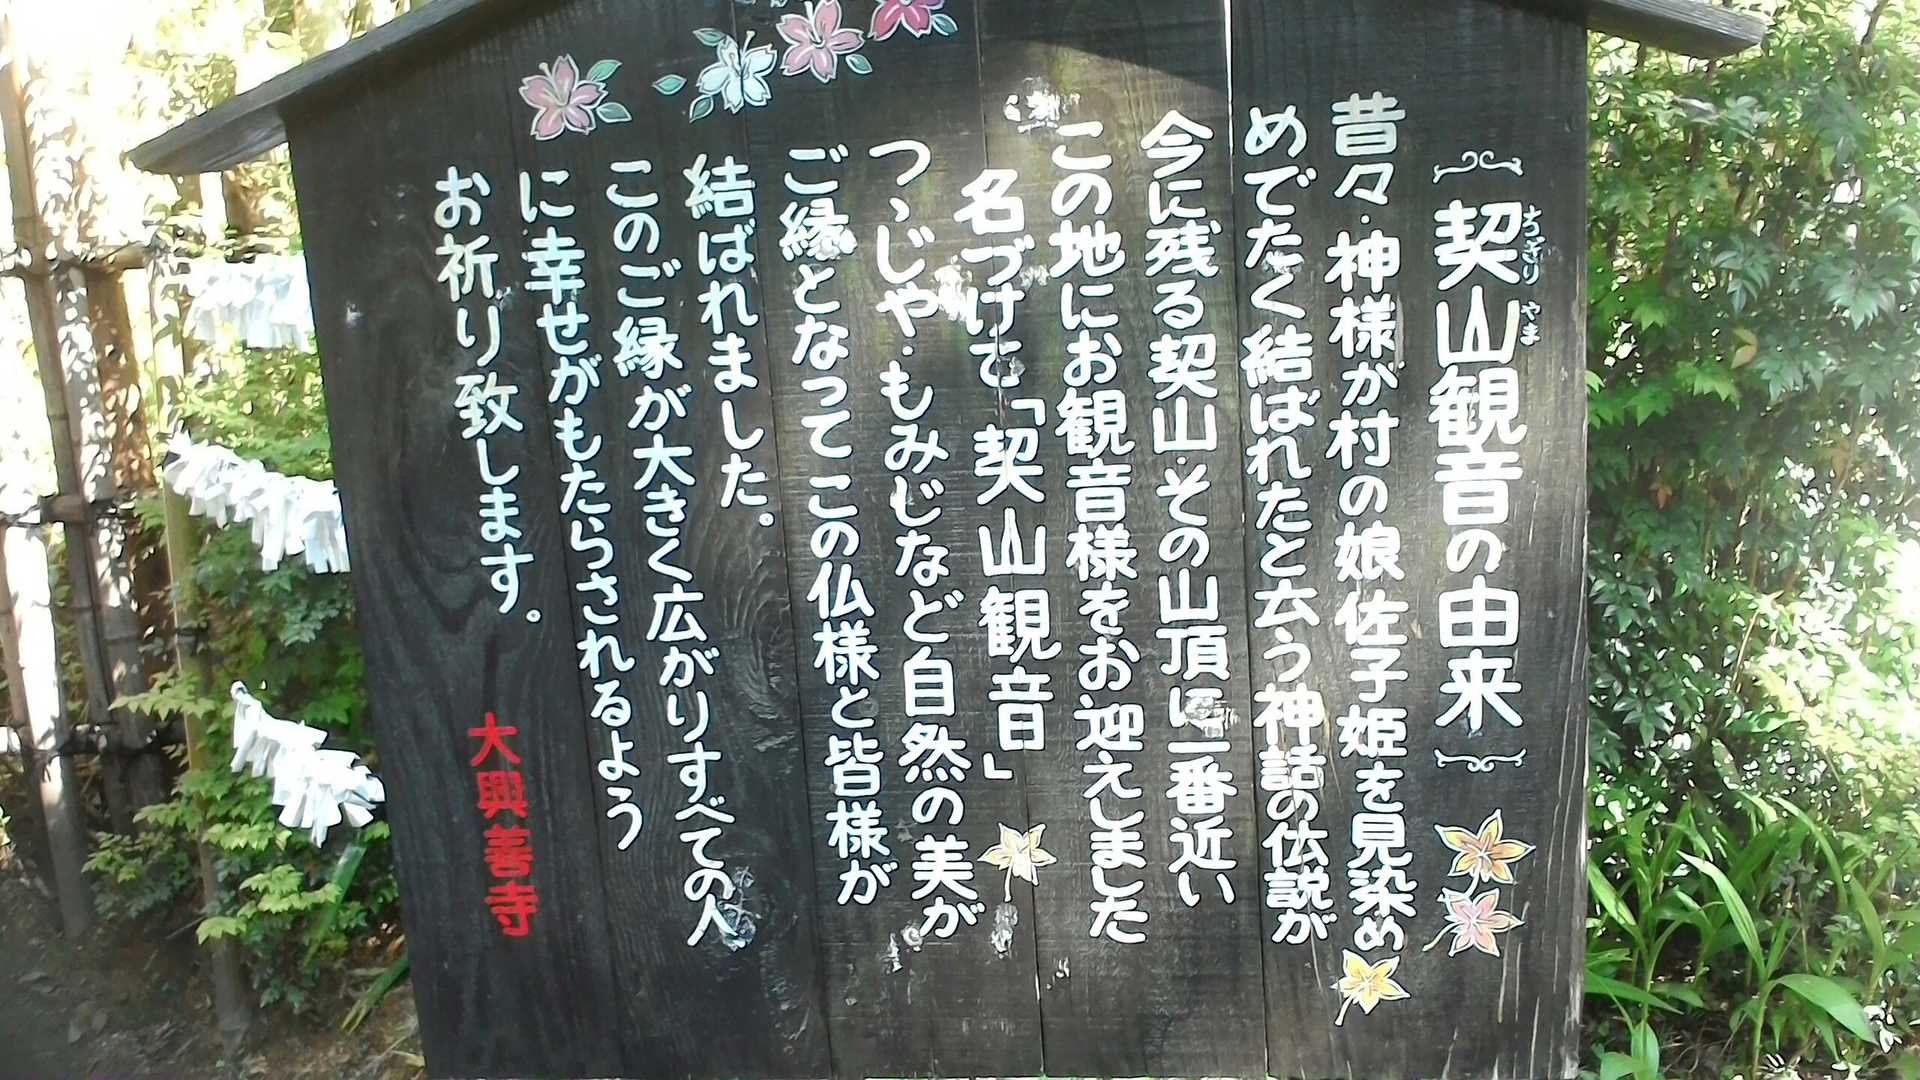 契山観音の由来
ちぎり やま
昔々・神様が村の娘佐子姫を見染め
めでたく結ばれたと云う神話の伝説が
今に残る契山・その山頂に一番近い
この地にお観音様をお迎えしました
名づけて「契山観音」
つゝじや・もみじなど自然の美が
ご縁となってこの仏様と皆様が
結ばれました。
このご縁が大きく広がりすべての人
に幸せがもたらされるよう
お祈り致します。
大興善寺